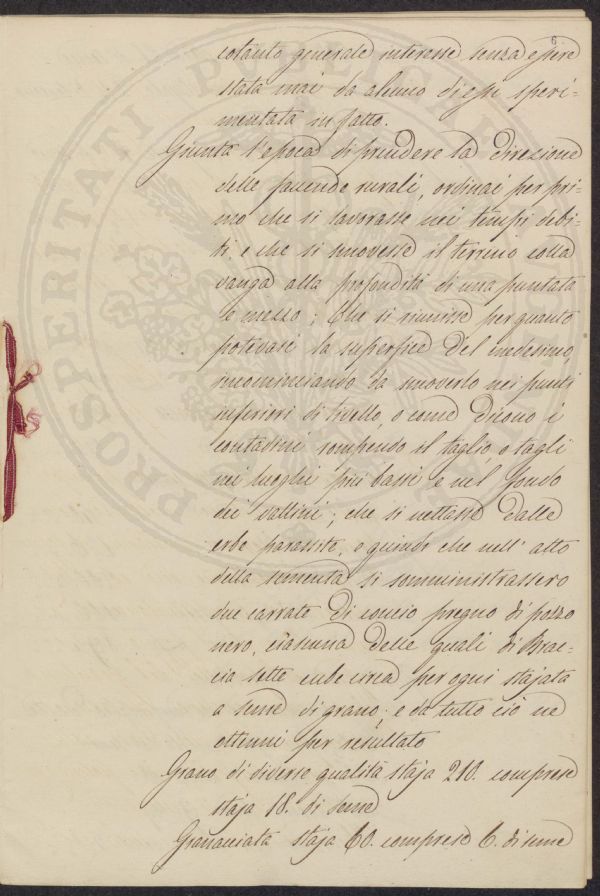 6.
cotanto generale interesse senza essere
stata mai da alcuno di essi speri=
mentata in fatto.
Giunta l'epoca di prendere la direzione
delle faccende rurali, ordinai per pri=
mo che si lavorasse nei tempi debi=
ti, e che si muovesse il terreno colla
vanga alla profondità di una puntata
e mezzo; Che si riunisse per quanto
potevasi la superfice del medesimo,
incominciando da muoverlo nei punti
inferiori di livello, o come dicono i
contadini rompendo il taglio, o tagli
nei luoghi più bassi e nel fondo
dei vallini; che si nettasse dalle
erbe parassite, e quindi che nell'atto
della sementa si somministrassero
due carrate di concio pregno di pozzo
nero, ciascuna delle quali di Brac=
cia sette cube circa per ogni stajata
a seme di grano; e da tutto ciò ne
ottenni per resultato
Grano di diverse qualità staja 210. comprese
staja 18. di seme
Granacciata staja 60. comprese 6. di seme
PROSPERITATI PUBLICAE